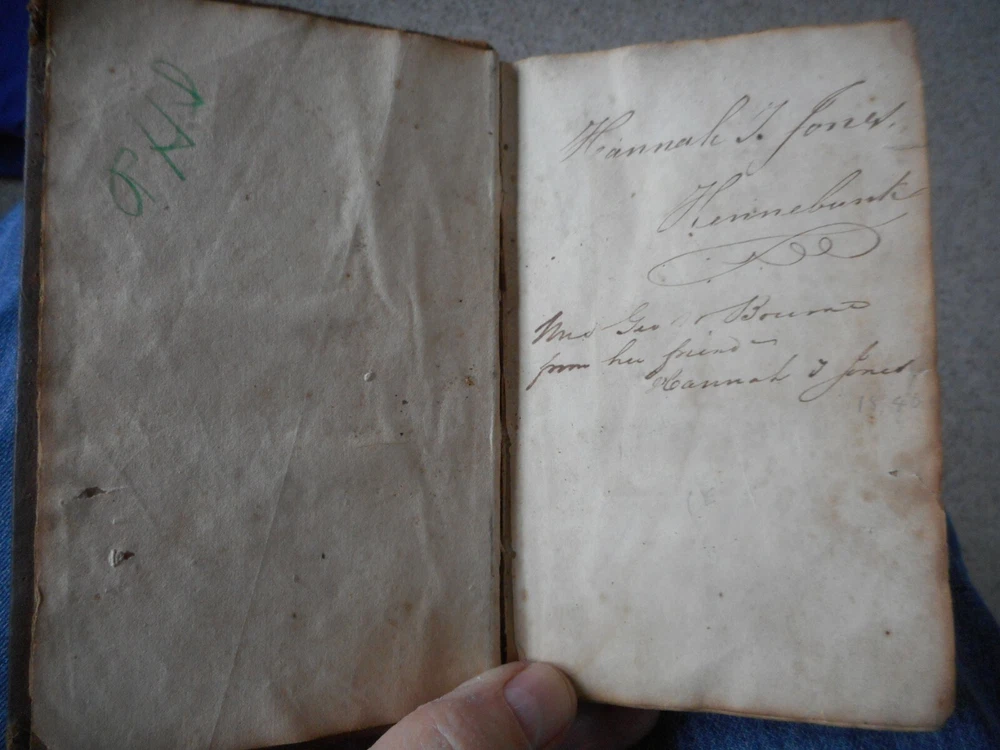 Hannah T. Jones.
Kennebunk
Mrs Geo Bourne
from her friend
Hannah T Jones